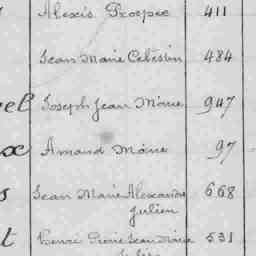 Alexis Prosper 411
Jean Marie Célestin 484
Joseph Jean Marie 947
Amand Marie 97
Jean Marie Alexandre 668
Julien
Henri Pierre Jean Marie 531